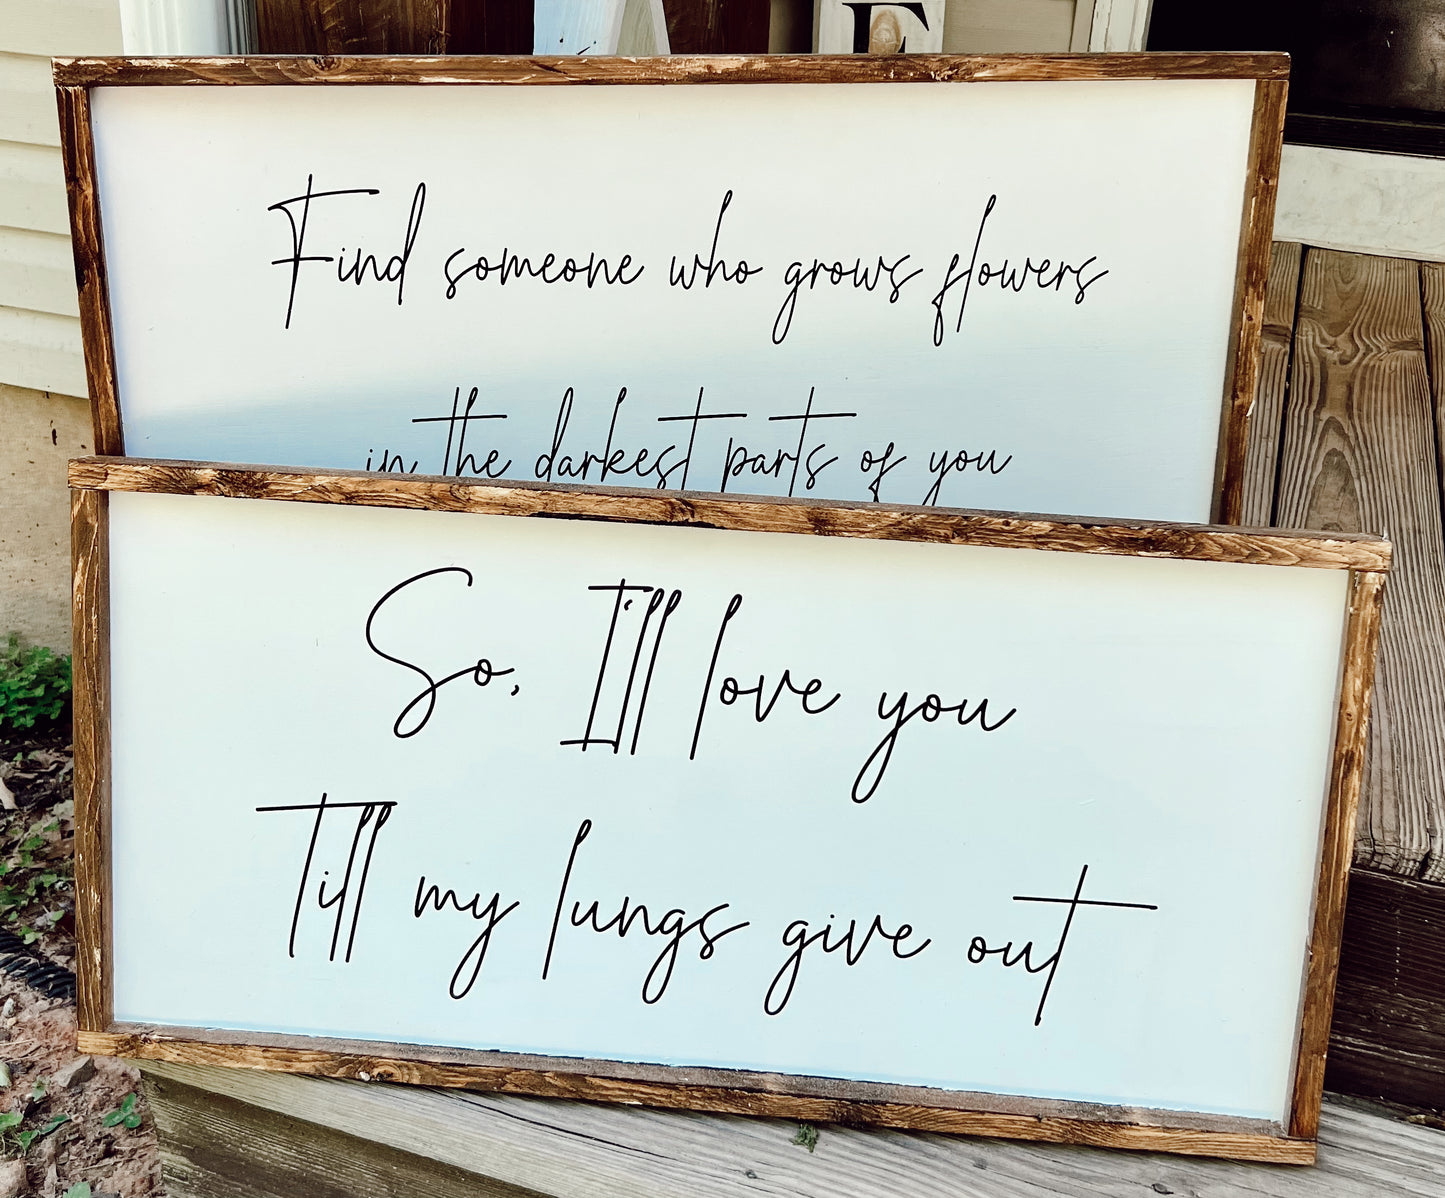 Find someone who grows flowers
in the darkest parts of you
So, I'll love you
Till my lungs give out